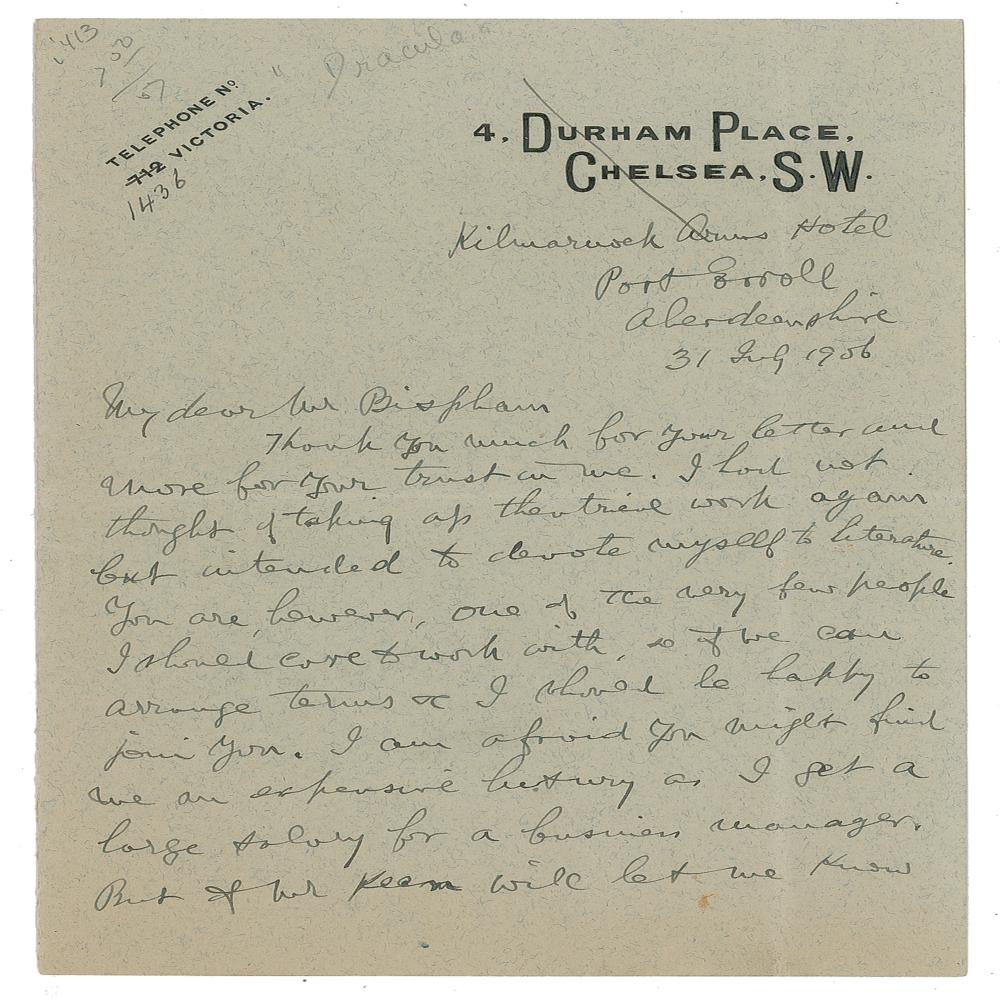 1413
7 50
"Dracula"
TELEPHONE No
712 VICTORIA.
1436
4, DURHAM PLACE,
CHELSEA, S.W.
Kilmarnock Arms Hotel
Port Erroll
Aberdeenshire
31 July 1906
My dear Mr Bispham
Thank you much for your letter and
more for your trust in me. I had not
thought of taking up theatrical work again
but intended to devote myself to literature.
You are, however, one of the very few people
I should care to work with, so if we can
arrange terms &c I should be happy to
join you. I am afraid you might find
me an expensive luxury as I get a
large salary for a business manager.
But if Mr Kean will let me know